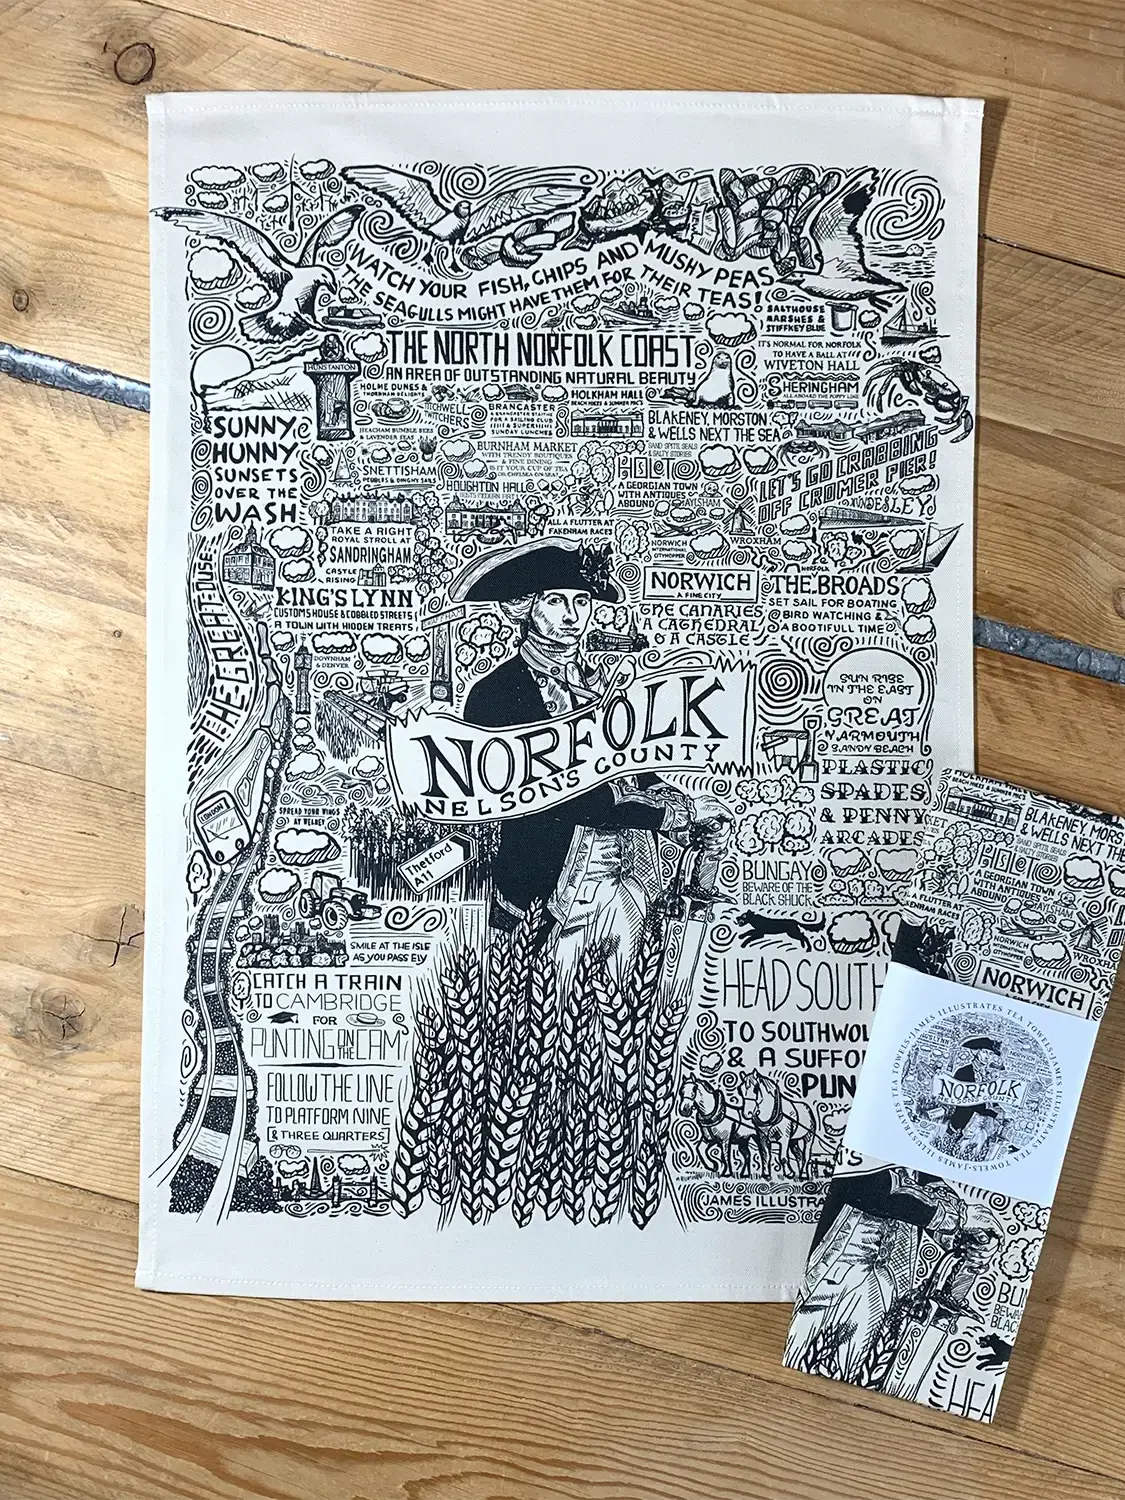 WATCH YOUR FISH, CHIPS AND MUSHY PEAS
THE SEAGULLS MIGHT HAVE THEM FOR THEIR TEAS!
SALTHOUSE
MARSHES &
STIFFKEY BLUE
THE NORTH NORFOLK COAST
AN AREA OF OUTSTANDING NATURAL BEAUTY
IT'S NORMAL FOR NORFOLK
TO HAVE A BALL AT
WIVETON HALL
SHERINGHAM
ALL ABOARD THE POPPY LINE
HUNSTANTON
HOLME DUNES &
THORNHAM DELIGHTS
TITCHWELL
TWITCHERS
BRANCASTER
SUNDAY LUNCHES
HOLKHAM HALL
BEACH HIKES & SUMMER
BLAKENEY, MORSTON
& WELLS NEXT THE SEA
SAND SPITS, SEALS
& SALTY STORIES
HEACHAM BUMBLE BEES
& LAVENDER SEAS
SNETTISHAM
PEBBLES & DINGHY SAILS
BURNHAM MARKET
WITH TRENDY BOUTIQUES
& FINE DINING
IS IT YOUR CUP OF TEA
OR CHELSEA ON SEA?
HOLT
A GEORGIAN TOWN
WITH ANTIQUES
ABOUND
AYLSHAM
LET'S GO CRABBING
OFF CROMER PIER!
MUNDESLEY
SUNNY,
HUNNY
SUNSETS
OVER THE
WASH
HOUGHTON HALL
ALL A FLUTTER AT
FAKENHAM RACES
TAKE A RIGHT
ROYAL STROLL AT
SANDRINGHAM
CASTLE
RISING
KING'S LYNN
CUSTOMS HOUSE & COBBLED STREETS
A TOWN WITH HIDDEN TREATS
DOWNHAM
& DENVER
THE GREAT OUSE
NORWICH
INTERNATIONAL
CITYHOPPER
WROXHAM
NORWICH
A FINE CITY
THE CANARIES
A CATHEDRAL
& A CASTLE
NORFOLK
THE BROADS
SET SAIL FOR BOATING
BIRD WATCHING &
A BOOTIFULL TIME
SUN RISE
IN THE EAST
ON
GREAT
YARMOUTH
SANDY BEACH
PLASTIC
SPADES
& PENNY
ARCADES
NORFOLK
NELSON'S COUNTY
LONDON
SPREAD YOUR WINGS
AT WELNEY
Thetford
A11
BUNGAY
BEWARE OF THE
BLACK SHUCK
SMILE AT THE ISLE
AS YOU PASS ELY
CATCH A TRAIN
TO CAMBRIDGE
FOR
PUNTING ON THE CAM
FOLLOW THE LINE
TO PLATFORM NINE
[& THREE QUARTERS]
HEAD SOUTH
TO SOUTHWOL
& A SUFFO
PUN
JAMES ILLUSTRA
BLAKENEY, MORS
& WELLS NEXT THE
SAND SPITS, SEALS
& SALTY STORIES
HOLT
A GEORGIAN TOWN
WITH ANTIQUES
ABOUND
AYLSHAM
A FLUTTER AT
KENHAM RACES
NORWICH
INTERNATIONAL
CITYHOPPER
WROXH
NORWICH
JAMES ILLUSTRATES TEA TOWELS
NORFOLK
NELSON'S COUNTY
BU
BEWA
BLAC
HEA